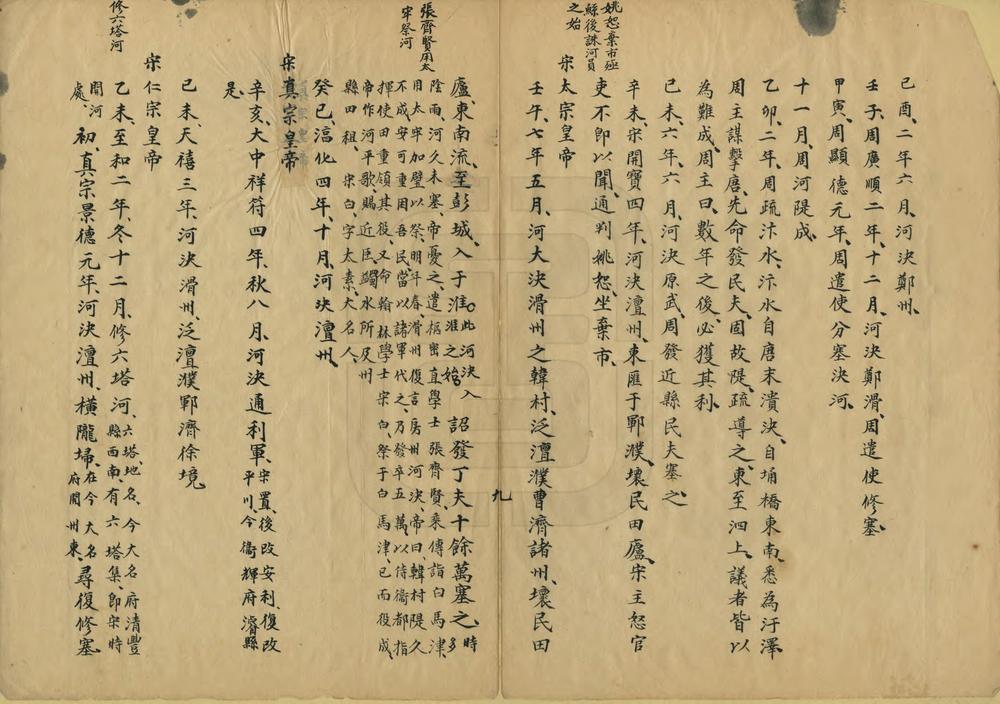 己酉、二年六月、河決鄭州、
壬子、周廣順二年、十二月、河決鄭滑、周遣使修塞、
甲寅、周顯德元年、周遣使分塞決河、
十一月、周河隄成、
乙卯、二年、周疏汴水、汴水自唐末潰決、自埇橋東南、悉為汙澤、
周主謀擊唐、先命發民夫、因故隄、疏導之、東至泗上、議者皆以
為難成、周主曰、數年之後、必獲其利、
己未、六年、六月、河決原武、周發近縣民夫塞之、
辛未、宋開寶四年、河決澶州、東匯于鄆濮、壞民田廬、宋主怒官
吏不即以聞、通判姚恕坐棄市、
姚恕棄市極
蘇後誅河員
之始
宋太宗皇帝
壬午、七年五月、河大決滑州之韓村、泛澶濮曹濟諸州、壞民田
九
廬、東南流、至彭城、入于淮、此河決入淮之始、詔發丁夫十餘萬塞之、時多
陰雨、河久未塞、帝憂之、遣樞密直學士張齊賢、乘傳詣白馬津、
用太牢加璧以祭、明年春、滑州復言房州河決、帝曰、韓村隄久
不成、安可重困吾民、當以諸軍代之、乃發卒五萬、以侍衞都指
揮使田重領其役、又命翰林學士宋白、祭于白馬津、已而役成、
帝作河平歌、賜近臣、蠲水所及州
縣田租、宋白、字太素、大名人、
張齊賢用太
牢祭河
癸巳、淳化四年、十月、河決澶州、
宋真宗皇帝
辛亥、大中祥符四年、秋八月、河決通利軍、宋置、後改安利、復改平川、今衞輝府濬縣
是、
己未、天禧三年、河決滑州、泛澶濮鄆濟徐境、
宋仁宗皇帝
乙未、至和二年、冬十二月、修六塔河、六塔地名、今大名府清豐縣西南、有六塔集、即宋時
開河
處、初、真宗景德元年、河決澶州、橫隴埽、在今大名府開州東、尋復修塞
修六塔河